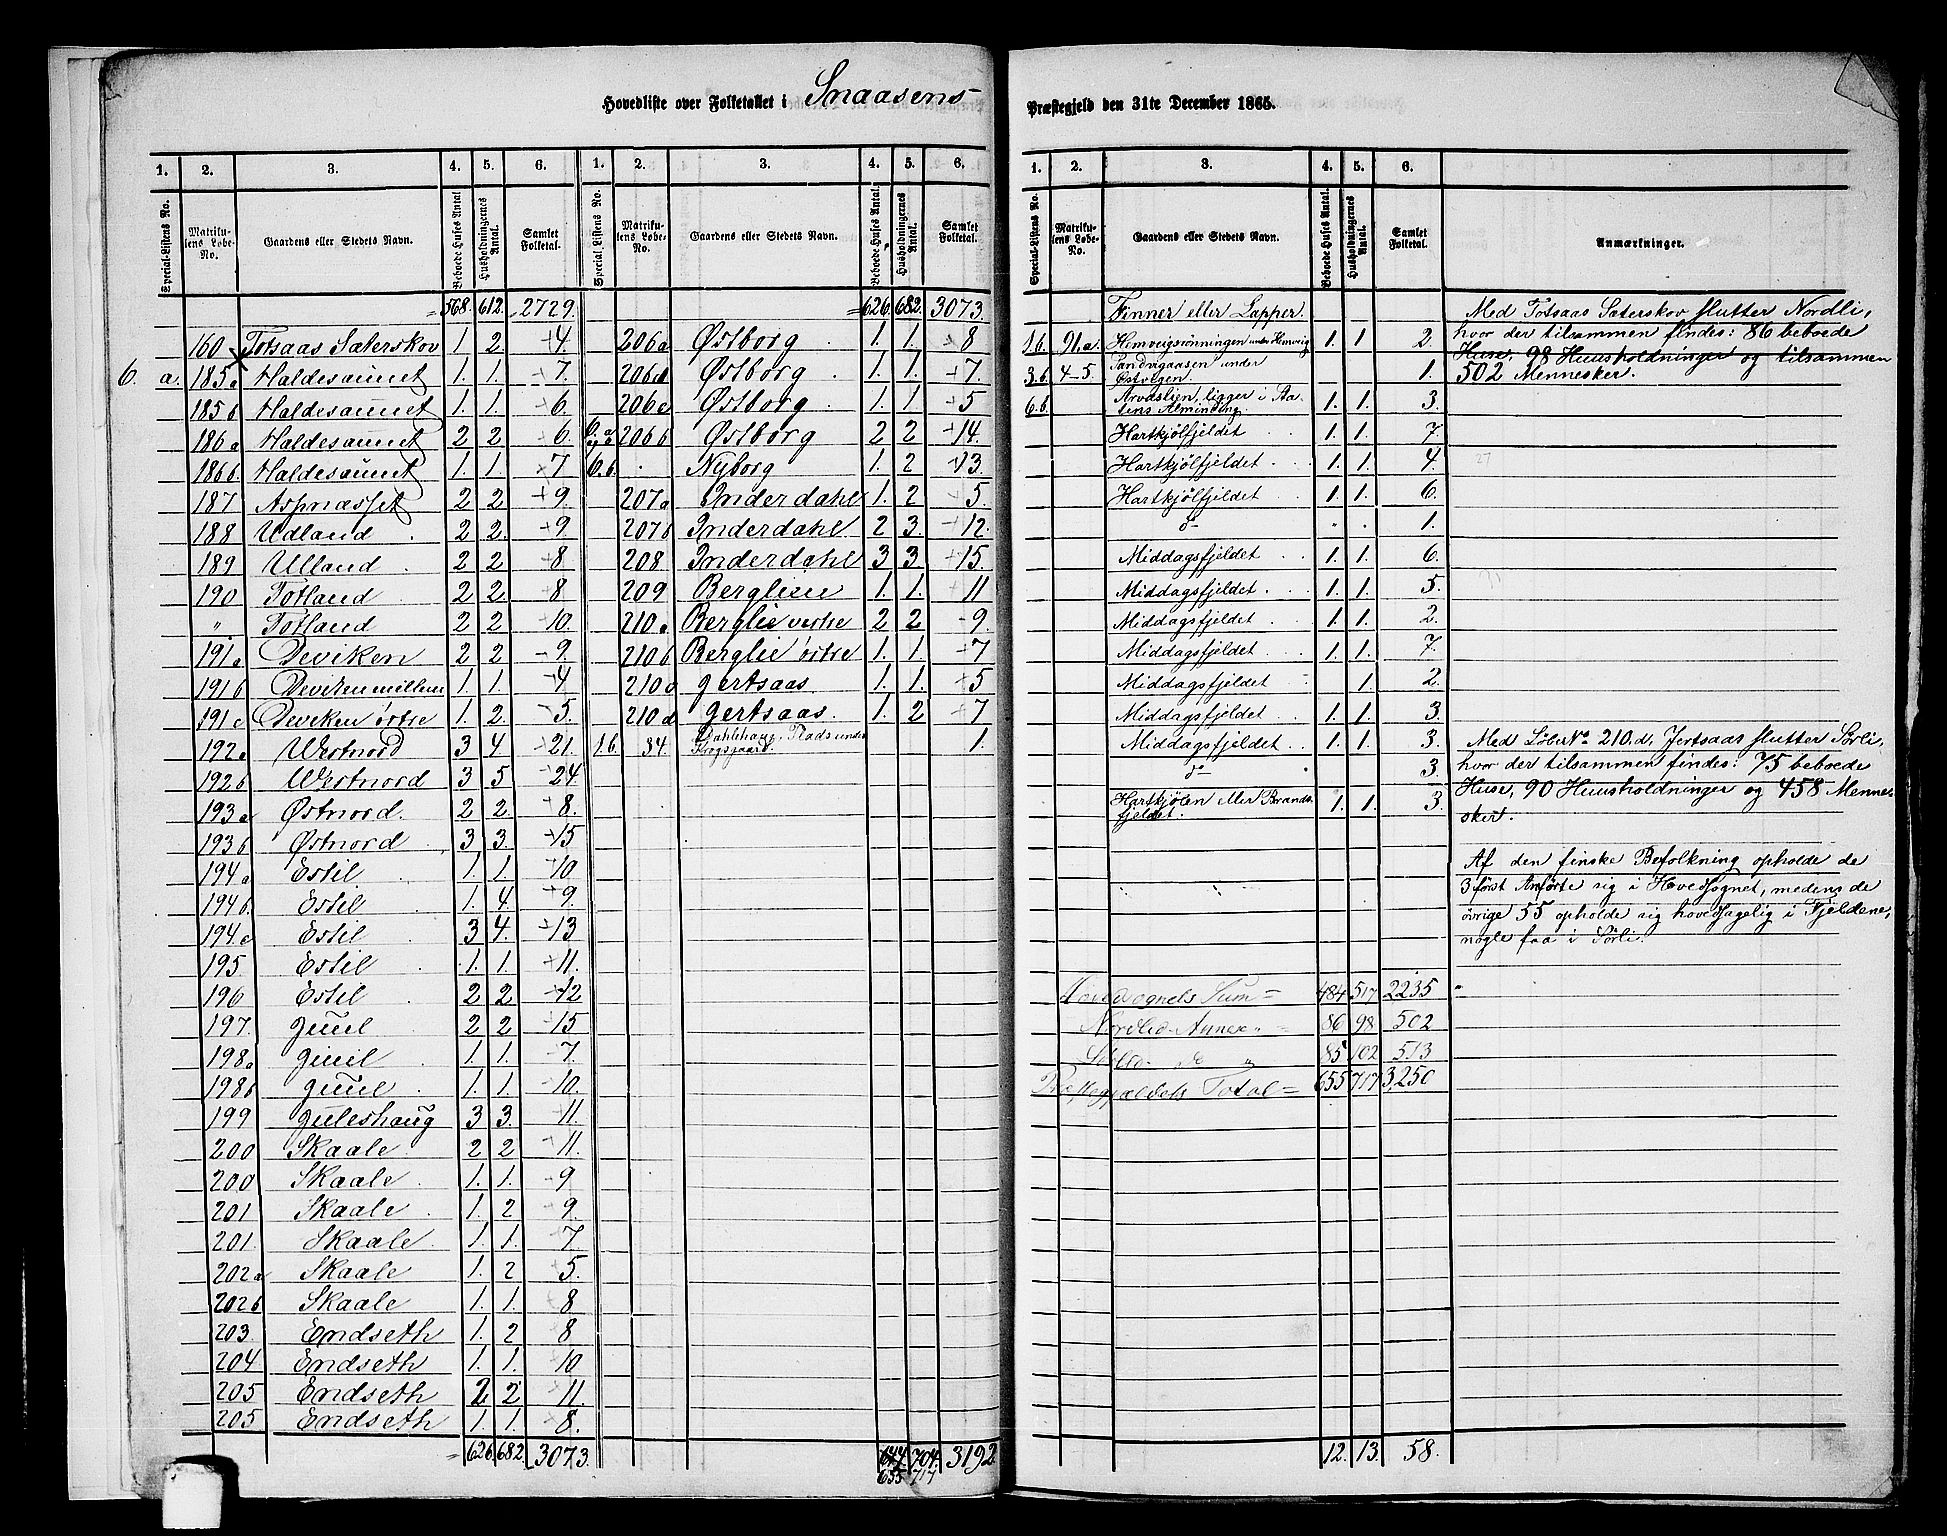 Hovedliste over Folketallet i Snaasens Præstegjeld den 31te December 1865.
1. 2. 3. 4. 5. 6. 1. 2. 3. 4. 5. 6.
Special-Listens No. Matrikulens Løbe-No. Gaardens eller Stedets Navn. Beboede Huses Antal Husholdningernes Antal. Samlet Folketal. Special-Listens No. Matrikulens Løbe-No. Gaardens eller Stedets Navn. Beboede Huses Antal. Husholdningernes Antal. Samlet Folketal.
= 568. 612. 2729.
160 Totsaas Sæterskov 1. 2. 4.
6. a. 185a Haldesaunet 1. 1. 7.
185b Haldesaunet 1. 1. 6.
186a Haldesaunet 2 2 6.
186b. Haldesaunet 1. 1. 7
187 Aspnæsset 2 2 9.
188 Udland 2 2. 9.
189 Ulland 2 2 8
190 Totland 2 2. 8
" Totland 2 2 10.
191a Deviken 2 2 9.
191b Deviken mellem 1. 1. 4
191c Deviken østre 1. 2 5.
192a Westnord 3 4. 21.
192b Westnord 3 5 24.
193a Østnord. 2 2. 8.
193b Østnord 3 3. 15
194a Estil 1. 1. 10
194b. Estil 1. 4. 9.
194.c Estil 3 4. 13
195 Estil 1. 1. 11.
196 Estil 2 2 12
197. Juul 2 2 15
198a Juul 1. 1. 7.
198b Juul 1. 1. 10.
199 Juleshaug 3 3. 11.
200 Skaale 2 2 11.
200 Skaale 1. 1. 9
201 Skaale 1. 2 9.
201. Skaale 1. 1. 7
202a Skaale 1. 2 5.
202b Skaale 1. 1. 8
203. Endseth 1. 2 8
204 Endseth 1. 1. 10
205 Endseth 2 2 11.
205 Endseth 1. 1. 8.
= 626. 682. 3073.
= 626. 682. 3073.
206a Østborg 1. 1. 8
Østborg 1. 1. 7.
206c Østborg 1. 1 5
206b Østborg 2 2 14.
6.b. Nyborg 1. 2 13.
207a Inderdahl 1. 2 5.
207b Inderdahl 2 3. 12.
208 Inderdahl 3 3. 15.
209 Berglien 1. 1. 11
210a Berglie vestre 2 2 9.
210b Berglie østre 1. 1. 7
Gertsaas 1. 1. 5
210d Gertsaas. 1. 2 7
1.b. 34. Dahlshaug, Plads under Krogsgaard. 1.
647. 704. 3192
655 717
1. 2. 3. 4. 5. 6.
Special-Listens No. Matrikulens Løbe-No. Gaardens eller Stedets Navn. Beboede Huses Antal. Husholdningernes Antal. Samlet Folketal. Anmærkninger.
Finner eller Lapper.
1.b. 91.a. Hemveigrönningen under Hemveig 1. 1. 2.
3.b. 4-5. under Østvegen. 1.
6.b. Arvaslien, ligger i Aalens Alminding. 1. 1. 3.
Hartkjölfjeldet 1. 1. 7.
Hartkjölfjeldet 1. 1. 4.
Hartkjölfjeldet 1. 1. 6.
do " " 1.
Middagsfjeldet 1. 1. 6.
Middagsfjeldet 1. 1. 5.
Middagsfjeldet 1. 1. 2.
Middagsfjeldet 1. 1. 7.
Middagsfjeldet 1. 2.
Middagsfjeldet 1. 1. 3.
Middagsfjeldet 1. 1. 3.
do 3.
Hartkjölen eller Brandsfjeldet. 1. 1. 3.
Hovedsognets Sum = 484 517 2235
Nordlid Annex " = 86 98 502
do " 85 102 513
Præstegjeldets Total = 655 717 3,250
12. 13. 58.
Med Totsaas Sæterskov slutter Nordli,
hvor der tilsammen findes: 86 beboede
Huse, 98 Huusholdninger og tilsammen
502 Mennesker.
27
Med LøbeNo 210.d. Jertsaas slutter Sørli,
hvor der tilsammen findes: 75 beboede
Huse, 90 Huusholdninger og 458 Mennesker.
Af den finske Befolkning opholde de
3 først Anførte sig i Hovedsognet, medens de
øvrige 55 opholde sig hovedsagelig i Fjeldene,
nogle faa i Sørli.